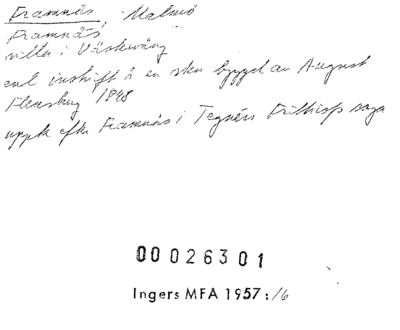 Framnäs, Malmö
Framnäs
villa i Västervång
enl inskrift å en sten byggd av August
Flensburg 1848
uppk efter Framnäs i Tegnérs Frithiofs saga
00026301
Ingers MFA 1957:16